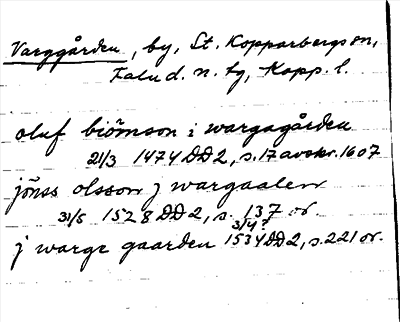 Varggården, by, St. Kopparbergs sn,
Falu d. n. tg, Kopp. l.
oluf biörnson i wargagården
21/3 1474 DD2, s. 17 avskr. 1607
jönss olsson j wargaalen
31/5 1528 DD2, s. 137 or.
3/4?
j warge gaarden 1534 DD2, s. 221 or.